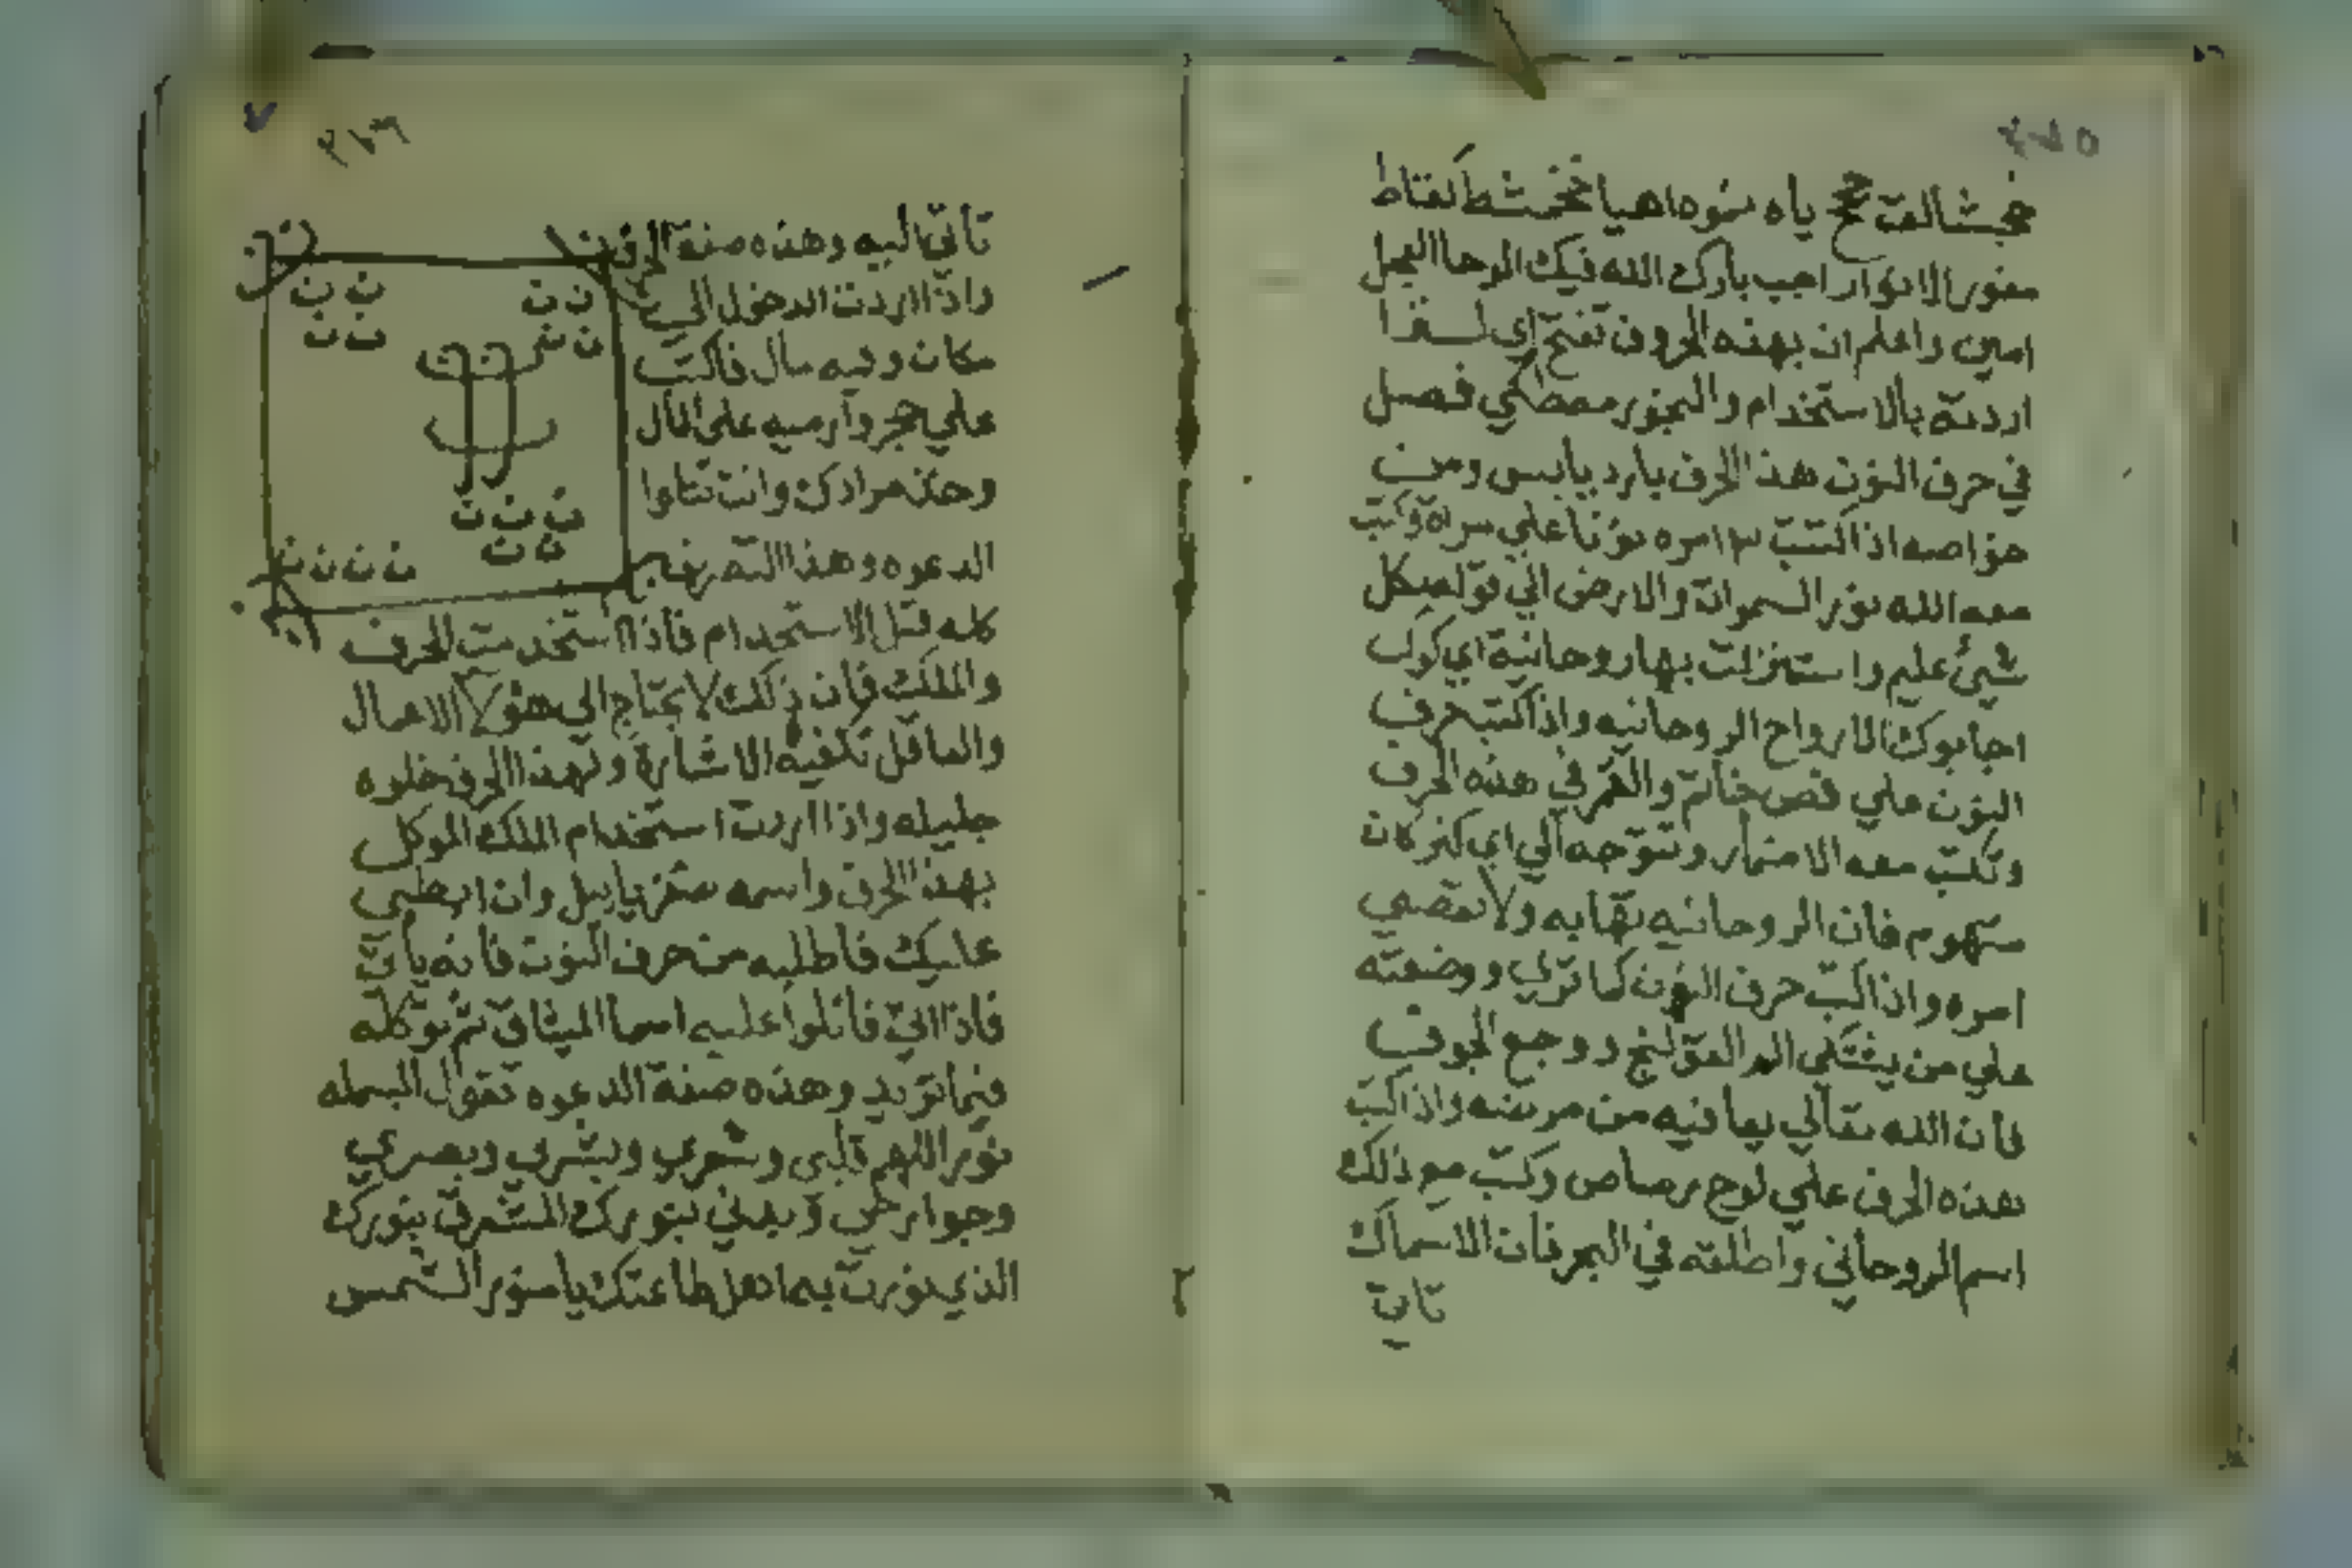 ياه نموه اهيا
منور الانوار اجب بارك الله فيك الوحا العجل
امين واعلم ان بهذه الحروف تفتح اي
اردته بالاستخدام والبخور فصل
في حرف النون هذا الحرف بارد يابس ومن
خواصه اذا كتبت نونا علي
معه الله نور السموات والارض الي قوله بكل
شيئ عليم واستنزلت بها روحانية اي كوكب
اجابوك الارواح الروحانيه واذا كتبت حرف
النون علي فص خاتم والقمر في هذه الحرف
وتكتب معه الاضمار وتتوجه الي اي كنز كان
فان الروحانيه ولا تعصي
امره واذا كتبت حرف النون كما تري ووضعته
علي من يشتكي الم القولنج ووجع الجوف
فان الله تعالي يعافيه من مرضه واذا كتبت
هذه الحرف علي لوح رصاص وكتبت مع ذلك
اسم الروحاني واطلقته في البحر فان الاسماك
تاتي
تاتي اليه وهذه صفة الحرف
واذا اردت الدخول الي
مكان وفيه مال فاكتب
علي حجر وارميه على المال
وخذ مرادك وانت تتلوا
الدعوه وهذا التصريف
كله قبل الاستخدام فاذا استخدمت الحرف
والملك فان ذلك لا يحتاج الي هولا الاعمال
والعاقل تكفيه الاشارة ولهذا الحرف خلوه
جليله واذا اردت استخدام الملك الموكل
بهذا الحرف واسمه وان ابطي
عليك فاطلبه من حرف النون فانه ياتي
فاذا اتي فاتلوا عليه اسما الميثاق ثم توكله
فيما تريد وهذه صفة الدعوه تقول البسمله
نور اللهم قلبي وشعري وبشري وبصري
وجوارحي بنورك المشرق بنورك
الذي نورت به اهل طاعتك يا منور الشمس